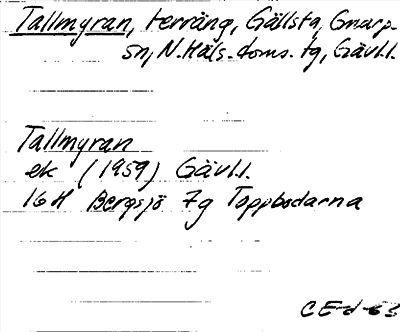 Tallmyran, terräng, Gällsta, Gnarp-
sn, N. Häls. doms. tg, Gävl.l.
Tallmyran
ek (1959) Gävl.l.
16 H Bergsjö 7g Toppbodarna
CE-d-63